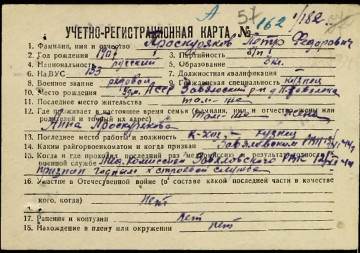 А 57 162/182.
УЧЕТНО-РЕГИСТРАЦИОННАЯ КАРТА №
1. Фамилия, имя и отчество Проскуряков Петр Федорович
2. Год рождения 1907 3. Партийность б/п
4. Национальность русский 5. Образование 3 кл.
6. НаВУС 133 7. Должностная квалификация
8. Военное звание рядовой 9. Гражданская специальность кузнец
10. Место рождения АССР Завьяловский р-н
11. Последнее место жительства там-же
12. Где проживает в настоящее время семья (фамилия, имя и отчество жены или родителей и точный их адрес) там-же жена
Анна Проскурякова
13. Последнее место работы и должность к-хоз- кузнец
14. Каким райгорвоенкоматом и когда призван Завьяловским РВК
15. Когда и где проходил последний раз медкомиссию и результат годности к
военной службе Мед. комиссии Завьяловского РВК
признан годным к строевой службе
16. Участие в Отечественной войне (в составе какой последней части в качестве
кого, когда) Нет
17. Ранения и контузии нет
18. Нахождение в плену или окружении нет